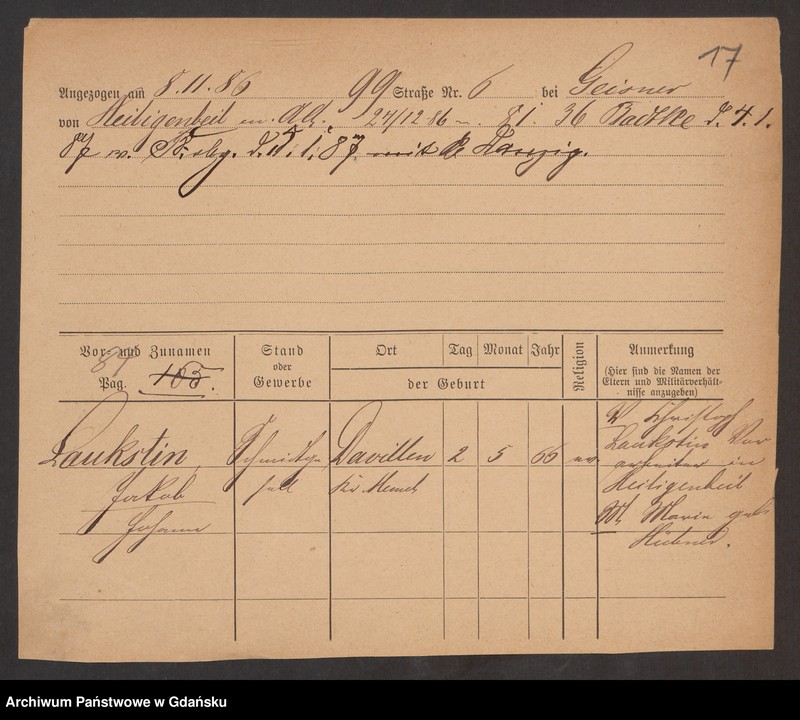 17
Angezogen am 8.11.86 99 Straße Nr. 6 bei Geisner
von Heiligenbeil 24/12 86 81. 36 Radtke d. 4. 1.
87 d. 11. 1. 87 mit Danzig.
Vor- und Zunamen Stand oder Gewerbe Ort Tag Monat Jahr der Geburt Religion Anmerkung
(Hier sind die Namen der Eltern und Militärverhältnisse anzugeben)
87
Pag. 105.
Laukstin, Schmiedege Davillen 2 5 66 ev.
Jakob sell Kr Memel
Johann
V Christoph
Laukstin Vor
arbeiter in
Heiligenbeil
M. Marie geb
Hübner.
Archiwum Państwowe w Gdańsku